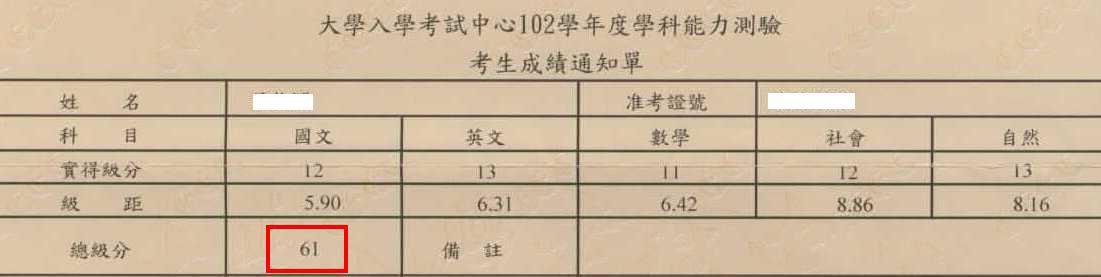 大學入學考試中心102學年度學科能力測驗
考生成績通知單
姓 名 准考證號
科 目 國文 英文 數學 社會 自然
實得級分 12 13 11 12 13
級 距 5.90 6.31 6.42 8.86 8.16
總級分 61 備 註